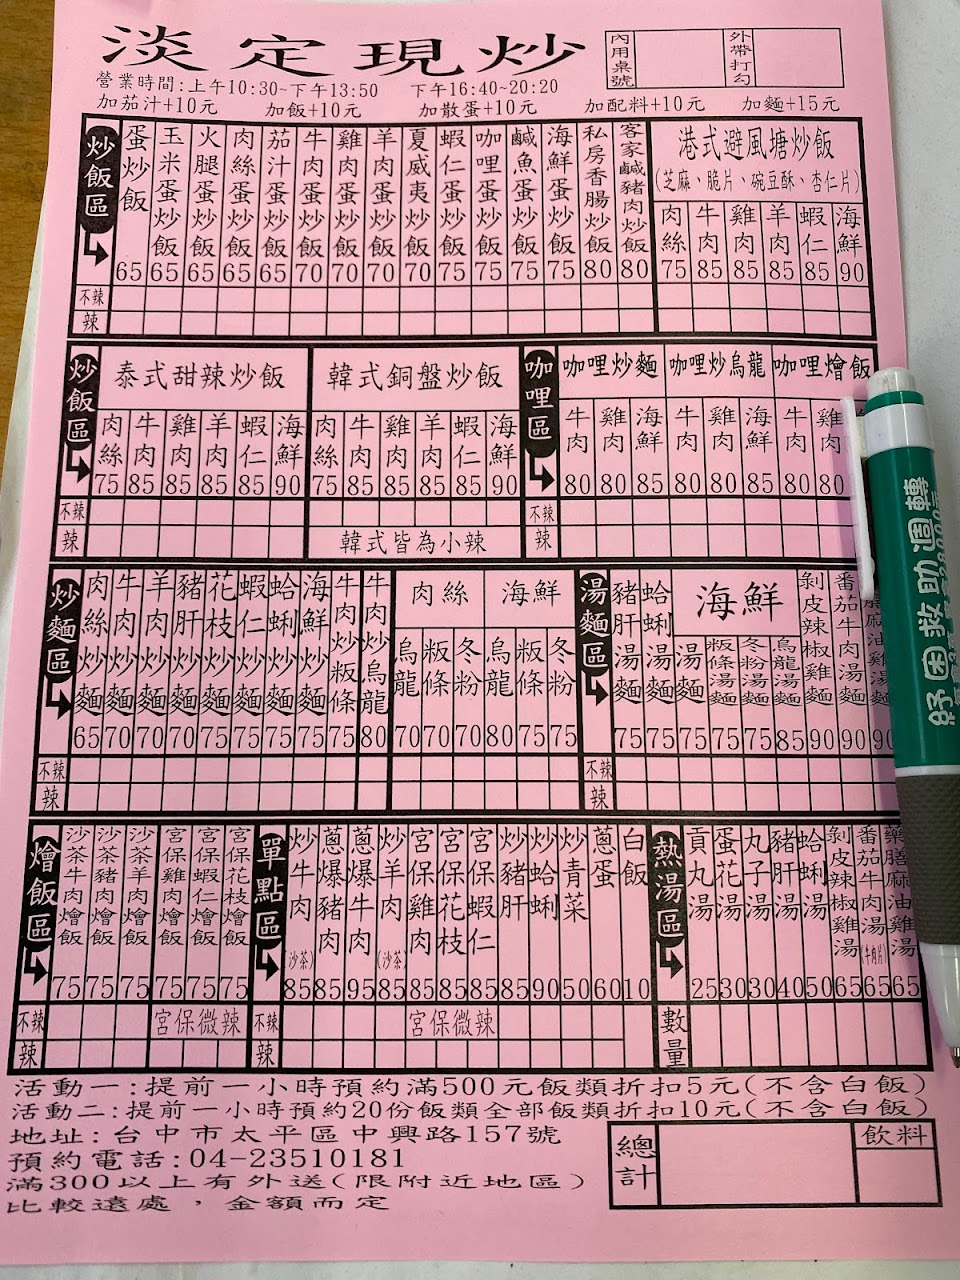 淡定現炒
內用桌號
外帶打勾
營業時間:上午10:30~下午13:50 下午16:40~20:20
加茄汁+10元 加飯+10元 加散蛋+10元 加配料+10元 加麵+15元
炒飯區
蛋炒飯 65
玉米蛋炒飯 65
火腿蛋炒飯 65
肉絲蛋炒飯 65
茄汁蛋炒飯 65
牛肉蛋炒飯 70
雞肉蛋炒飯 70
羊肉蛋炒飯 70
夏威夷蛋炒飯 70
蝦仁蛋炒飯 75
咖哩蛋炒飯 75
鹹魚蛋炒飯 75
海鮮蛋炒飯 75
私房香腸炒飯 80
客家鹹豬肉炒飯 80
港式避風塘炒飯
(芝麻、脆片、碗豆酥、杏仁片)
肉絲 75
牛肉 85
雞肉 85
羊肉 85
蝦仁 85
海鮮 90
不辣
辣
炒飯區
泰式甜辣炒飯
肉絲 75
牛肉 85
雞肉 85
羊肉 85
蝦仁 85
海鮮 90
韓式銅盤炒飯
肉絲 75
牛肉 85
雞肉 85
羊肉 85
蝦仁 85
海鮮 90
不辣
辣
韓式皆為小辣
咖哩區
咖哩炒麵
牛肉 80
雞肉 80
海鮮 85
咖哩炒烏龍
牛肉 80
雞肉 80
海鮮 85
咖哩燴飯
牛肉 80
雞肉 80
不辣
辣
炒麵區
肉絲炒麵 65
牛肉炒麵 70
羊肉炒麵 70
豬肝炒麵 70
花枝炒麵 75
蝦仁炒麵 75
蛤蜊炒麵 75
海鮮炒麵 75
牛肉炒粄條 75
牛肉炒烏龍 80
肉絲
烏龍 70
粄條 70
冬粉 70
海鮮
烏龍 80
粄條 75
冬粉 75
不辣
辣
湯麵區
豬肝湯麵 75
蛤蜊湯麵 75
海鮮
湯麵 75
粄條湯麵 75
冬粉湯麵 75
烏龍湯麵 85
剝皮辣椒雞麵 90
番茄牛肉湯麵 90
膳麻油雞麵 90
不辣
辣
燴飯區
沙茶牛肉燴飯 75
沙茶豬肉燴飯 75
沙茶羊肉燴飯 75
宮保雞肉燴飯 75
宮保蝦仁燴飯 75
宮保花枝燴飯 75
不辣
辣
宮保微辣
單點區
炒牛肉(沙茶) 85
蔥爆豬肉 85
蔥爆牛肉 95
炒羊肉(沙茶) 85
宮保雞肉 85
宮保花枝 85
宮保蝦仁 85
炒豬肝 85
炒蛤蜊 90
炒青菜 50
蔥蛋 60
白飯 10
不辣
辣
宮保微辣
熱湯區
貢丸湯 25
蛋花湯 30
丸子湯 30
豬肝湯 40
蛤蜊湯 50
剝皮辣椒雞湯 65
番茄牛肉湯(牛肉片) 65
藥膳麻油雞湯 65
數量
活動一:提前一小時預約滿500元飯類折扣5元(不含白飯)
活動二:提前一小時預約20份飯類全部飯類折扣10元(不含白飯)
地址:台中市太平區中興路157號
預約電話:04-23510181
滿300以上有外送(限附近地區)
比較遠處,金額而定
總計
飲料
紓困救助週轉